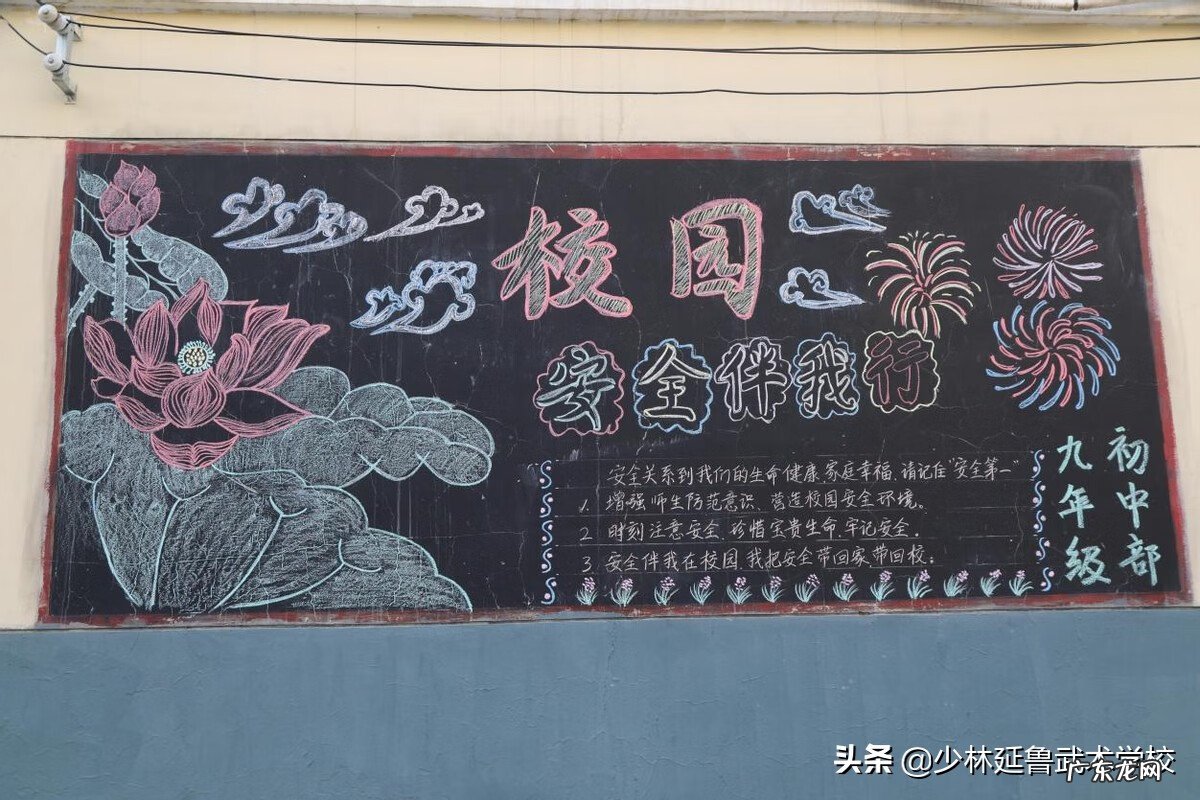 校园
安全伴我行
安全关系到我们的生命健康、家庭幸福、请记住"安全第一"
1. 增强师生防范意识、营造校园安全环境。
2 时刻注意安全、珍惜宝贵生命、牢记安全。
3 安全伴我在校园、我把安全带回家、带回校。
初中部
九年级
头条 @少林延鲁武术学校
广东龙网